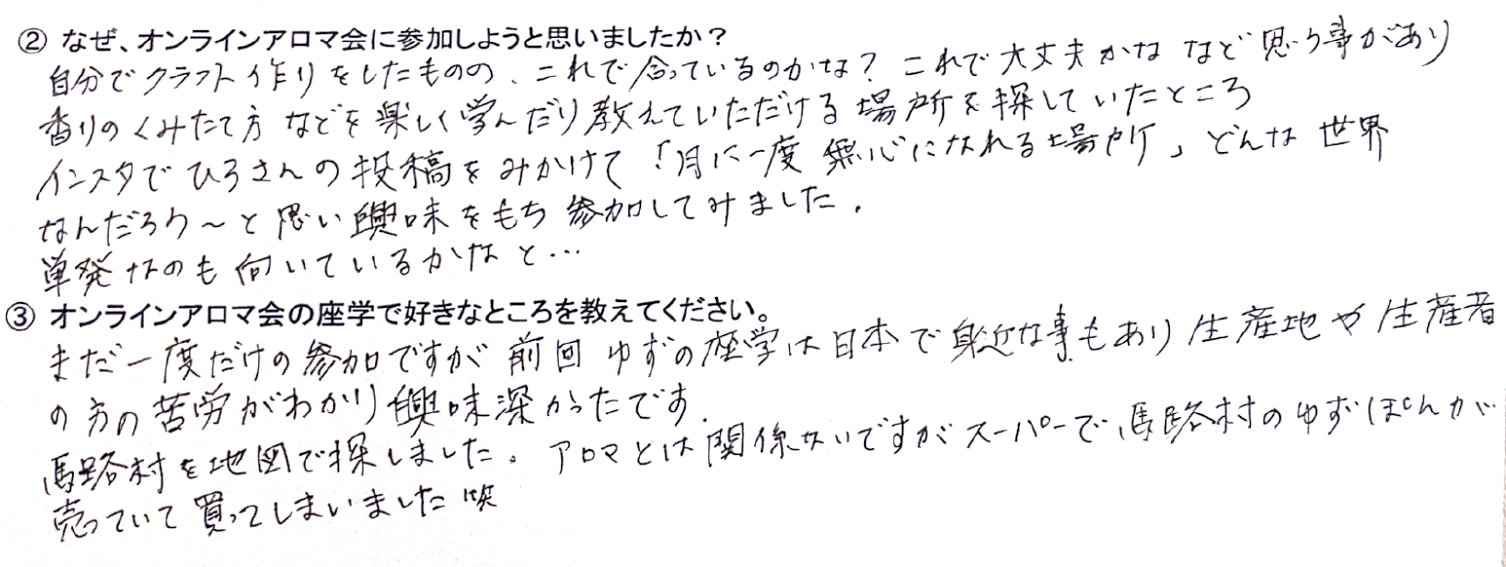 ② なぜ、オンラインアロマ会に参加しようと思いましたか？
自分でクラフト作りをしたものの、これで合っているのかな？これで大丈夫かな など思う事があり
香りのくみたて方 などを楽しく学んだり教えていただける場所を探していたところ
インスタでひろさんの投稿をみかけて「月に一度 無心になれる場所」どんな世界
なんだろう〜と思い興味をもち参加してみました.
単発なのも向いているかなと…
③ オンラインアロマ会の座学で好きなところを教えてください。
まだ一度だけの参加ですが前回ゆずの座学は日本で身近な事もあり生産地や生産者
の方の苦労がわかり興味深かったです.
馬路村を地図で探しました。アロマとは関係ないですがスーパーで馬路村のゆずぽんが
売っていて買ってしまいました笑